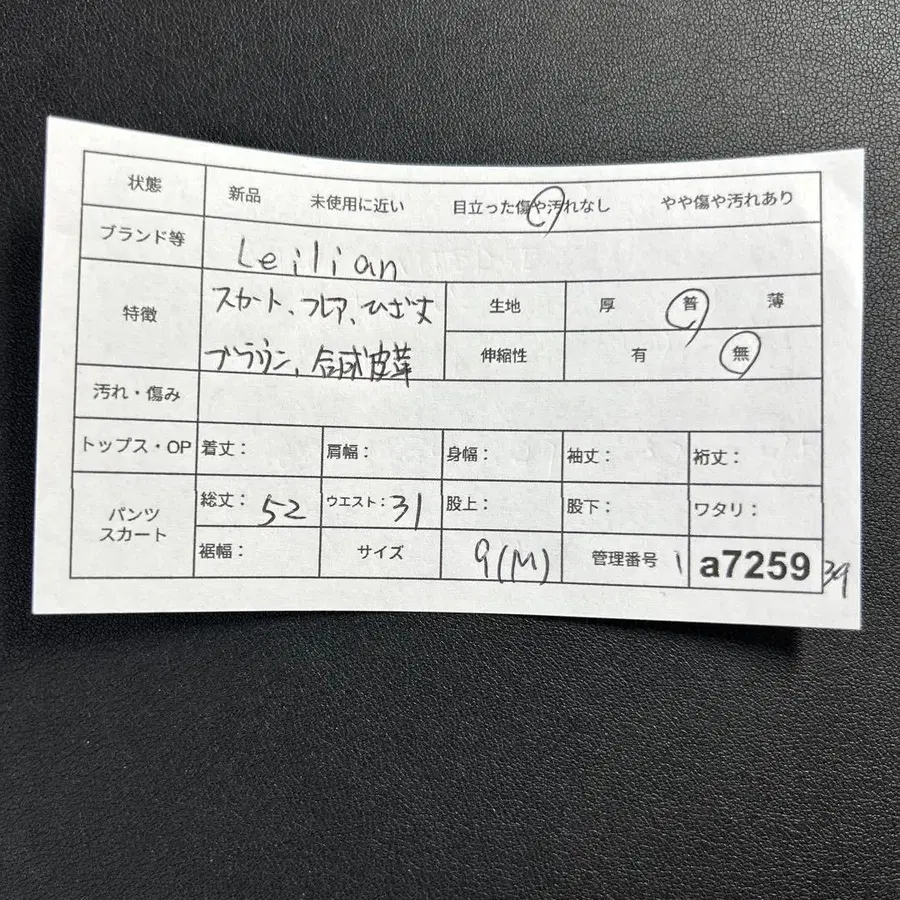 状態 新品 未使用に近い 目立った傷や汚れなし やや傷や汚れあり
ブランド等 Leilian
特徴 スカート、フレア、ひざ丈
ブラウン、合成皮革
生地 厚 普 薄
伸縮性 有 無
汚れ・傷み
トップス・OP 着丈： 肩幅： 身幅： 袖丈： 裄丈：
パンツ
スカート
総丈：52 ウエスト：31 股上： 股下： ワタリ：
裾幅： サイズ 9(M) 管理番号 1 a7259 39